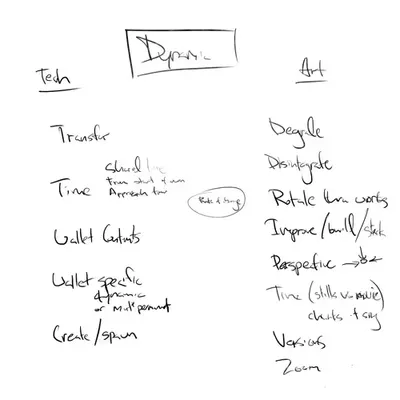 Dynamic
Tech
Art
Transfer
Time
Shared time
from start of
Approach
Wallet Contents
Wallet specific
dynamic
or multi
Create/spawn
Degrade
Disintegrate
Rotate thru works
Improve/build/stack
Perspective
Time (stills vs movie)
Versions
Zoom